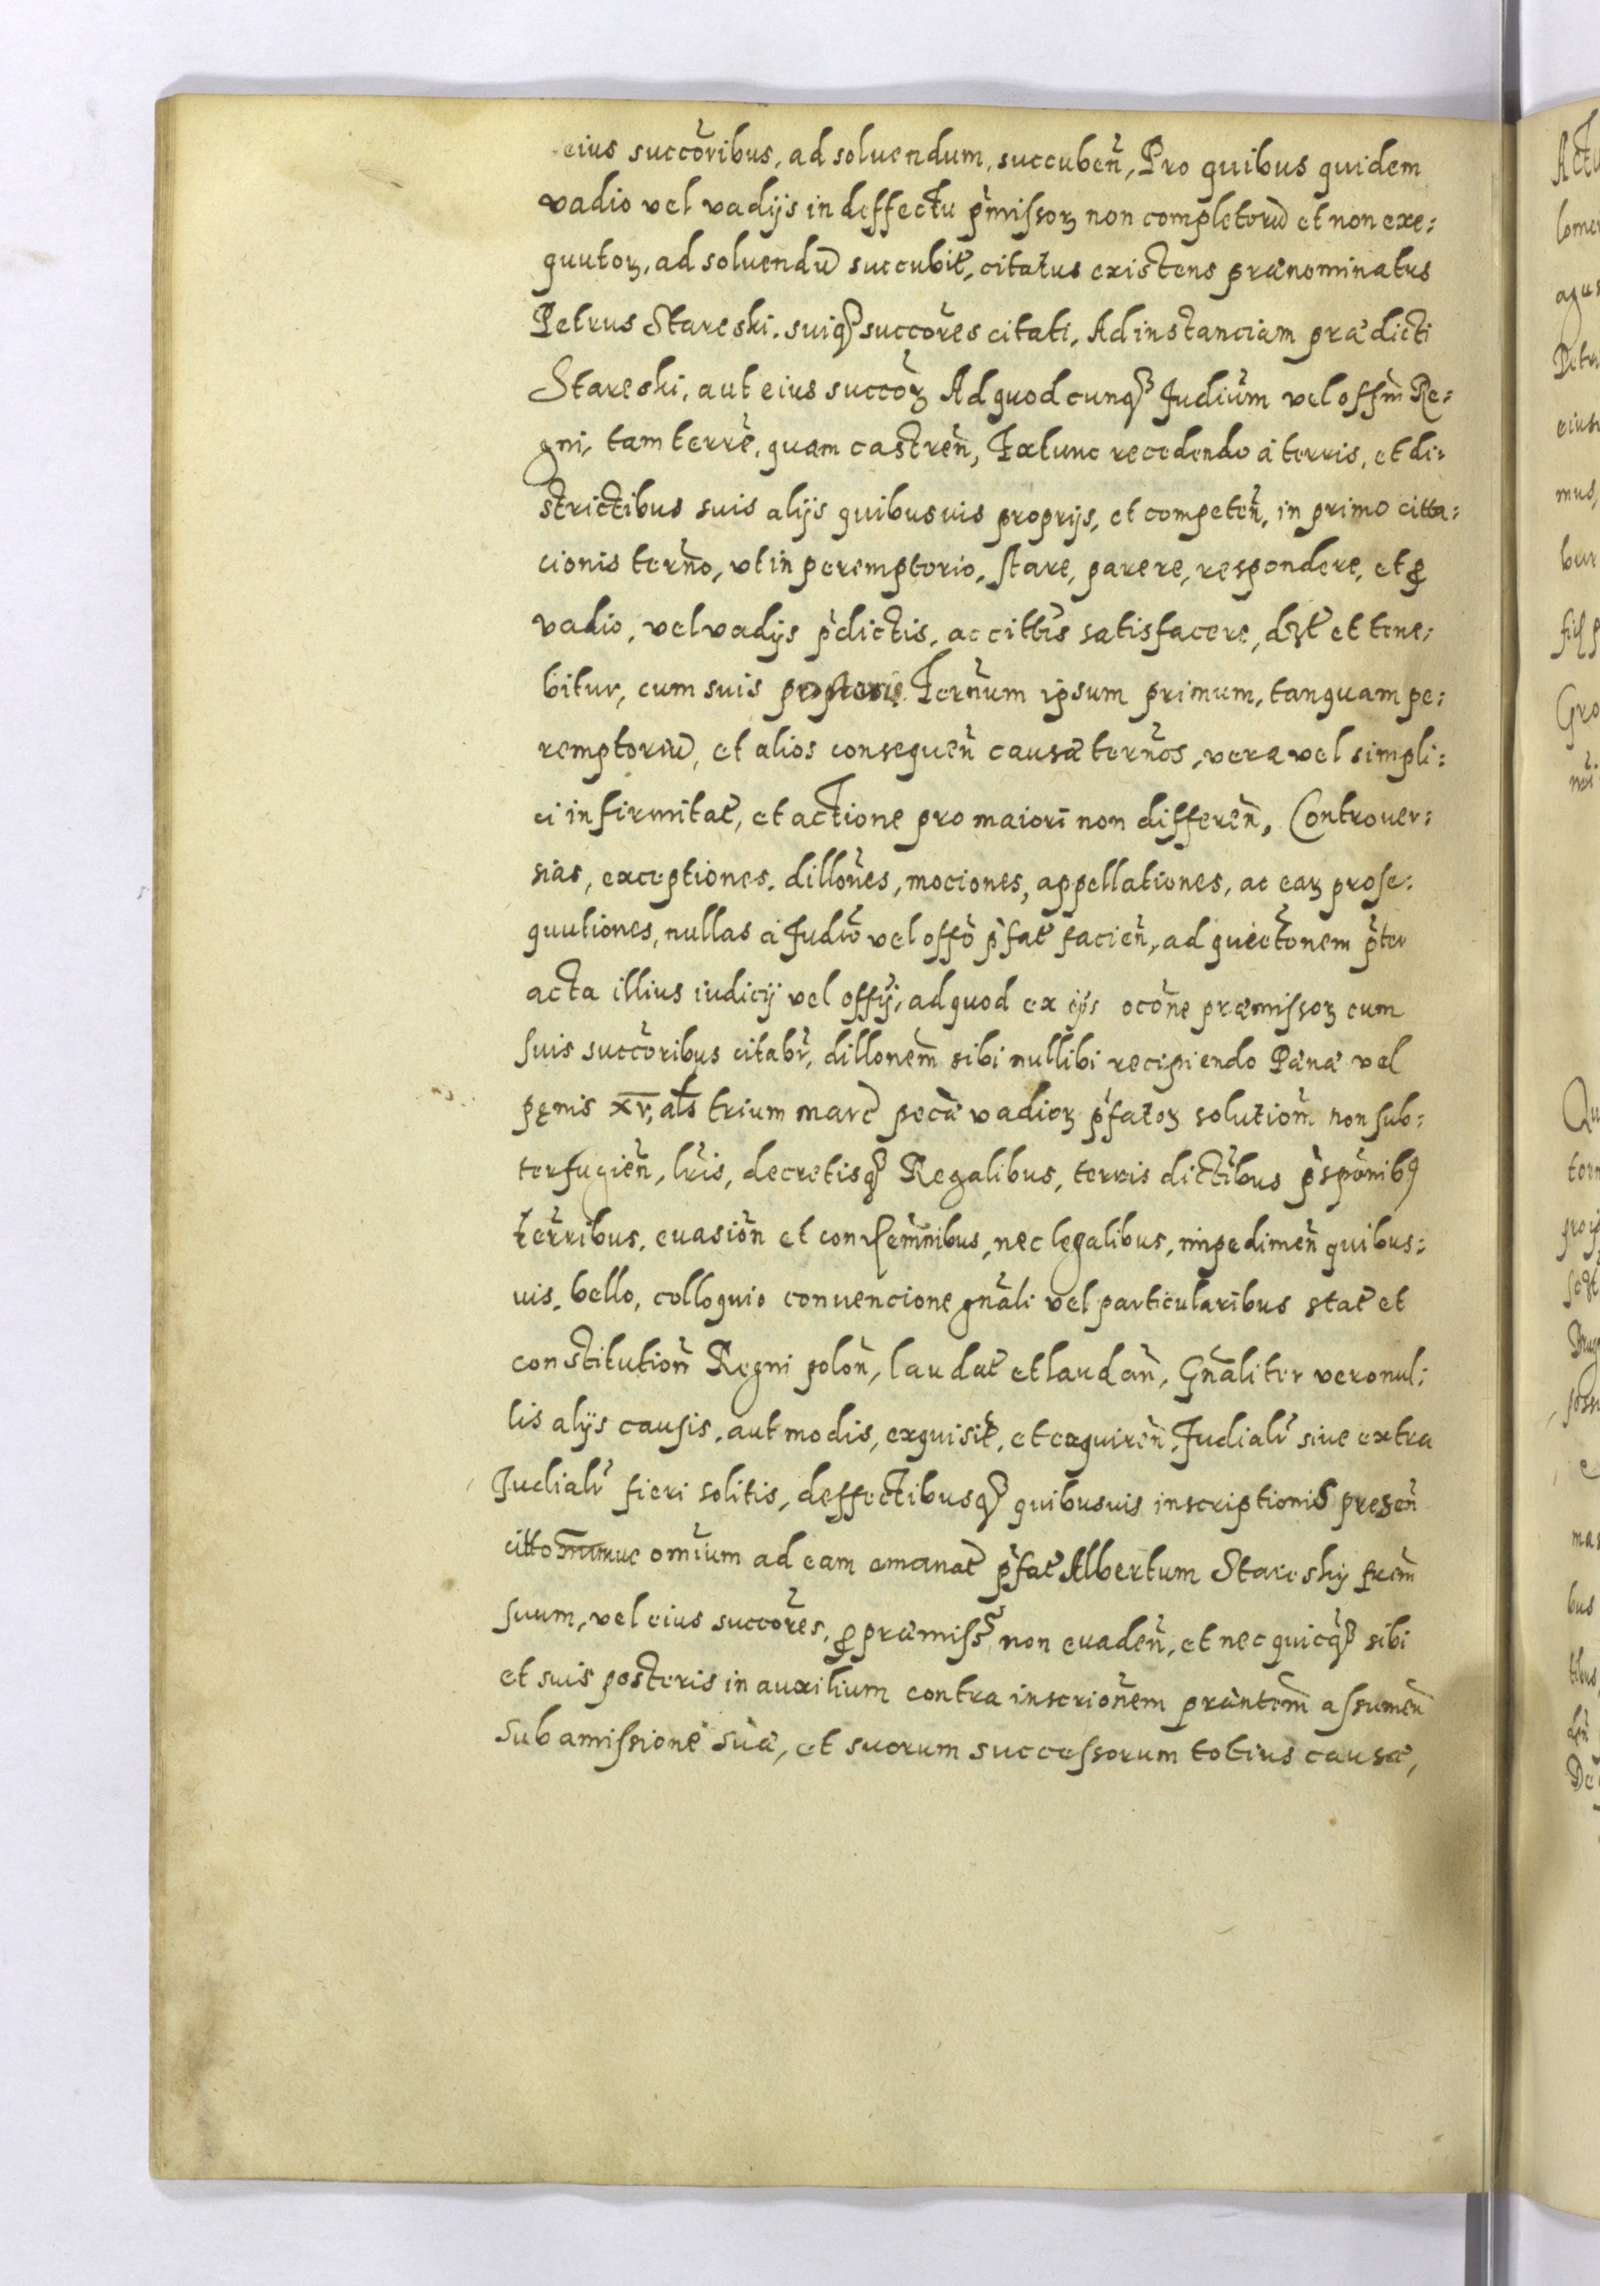 eius succoribus, ad soluendum, succuben, Pro quibus quidem
vadio vel vadijs in deffectu pmissoꝝ non completorū et non exe:
quutoꝝ, ad soluendū succubit, citatus existens prænominatus
Petrus Stareski, suiqꝫ succores citati, Ad instanciam prædicti
Stareski, aut eius succoꝝ Ad quodcunqꝫ Judium vel offm Re:
gni, tam terre, quam castren, Extunc recedendo á terris, et di:
strictibus suis alijs quibusuis proprijs, et competen, in primo citta:
cionis terno, vt in peremptorio, stare, parere, respondere, et ꝓ
vadio, vel vadijs pdictis, ac cittis satisfacere, dꝫt et tene:
bitur, cum suis posteris. Ternum ipsum primum, tanquam pe:
remptoriū, et alios consequen causæ ternos, vera vel simpli:
ci infirmitat, et actione pro maiori non differen, Controuer:
sias, exceptiones, dillones, mociones, appellationes, ac eaꝝ prose:
quutiones, nullas á Judio vel offo pfat facien, ad quietonem pter
acta illius iudicij vel offij, ad quod ex ijs ocone præmissoꝝ cum
suis succoribus citabr, dillonem sibi nullibi recipiendo Pæna vel
penis xv, als trium marc peca vadioꝝ pfatoꝝ solution non sub:
terfugien, lris, decretisqꝫ Regalibus, terris dictibus psponibꝫ
terribus, euasion et con, nec legalibus, impedimen quibus:
uis, bello, colloquio conuencione gnali vel particularibus stat et
constitution Regni polon, laudat et laudan, Gnaliter vero nul:
lis alijs causis, aut modis, exquisit, et exquiren, Judialr siue extra
Judialr fieri solitis, deffectibusqꝫ quibusuis inscriptionis presen
citto omium ad eam emanat pfat Albertum Stareskij frem
suum, vel eius succores, ꝓ præmiss non euaden, et nec quicqꝫ sibi
et suis posteris in auxilium contra inscrionem præntem assumen
Sub amissione sua, et suorum successorum totius causæ,